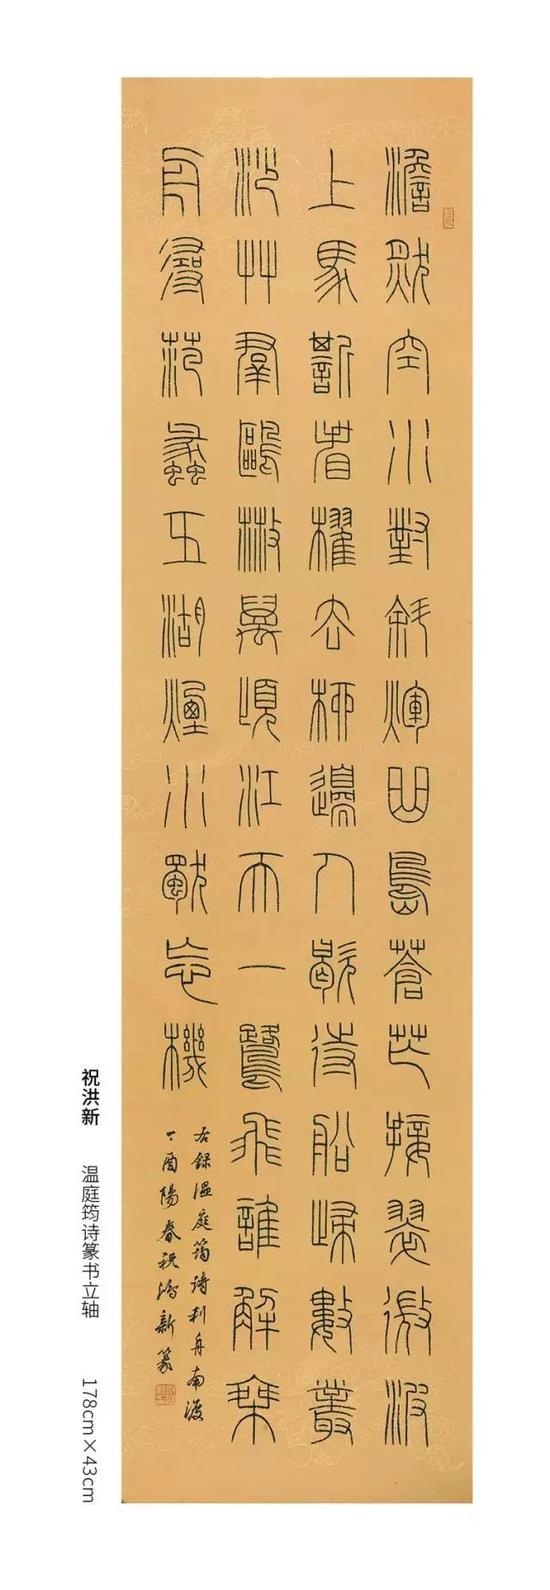 澹然空水對斜煇曲島蒼茫接翠微波
上馬嘶看櫂去柳邊人歇待船歸數叢
沙艸羣鷗散萬頃江天一鷺飛誰解乘
舟尋范蠡五湖煙水獨忘機
右錄温庭筠詩利舟南渡
丁酉陽春祝洪新篆
祝洪新 温庭筠诗篆书立轴 178cm×43cm